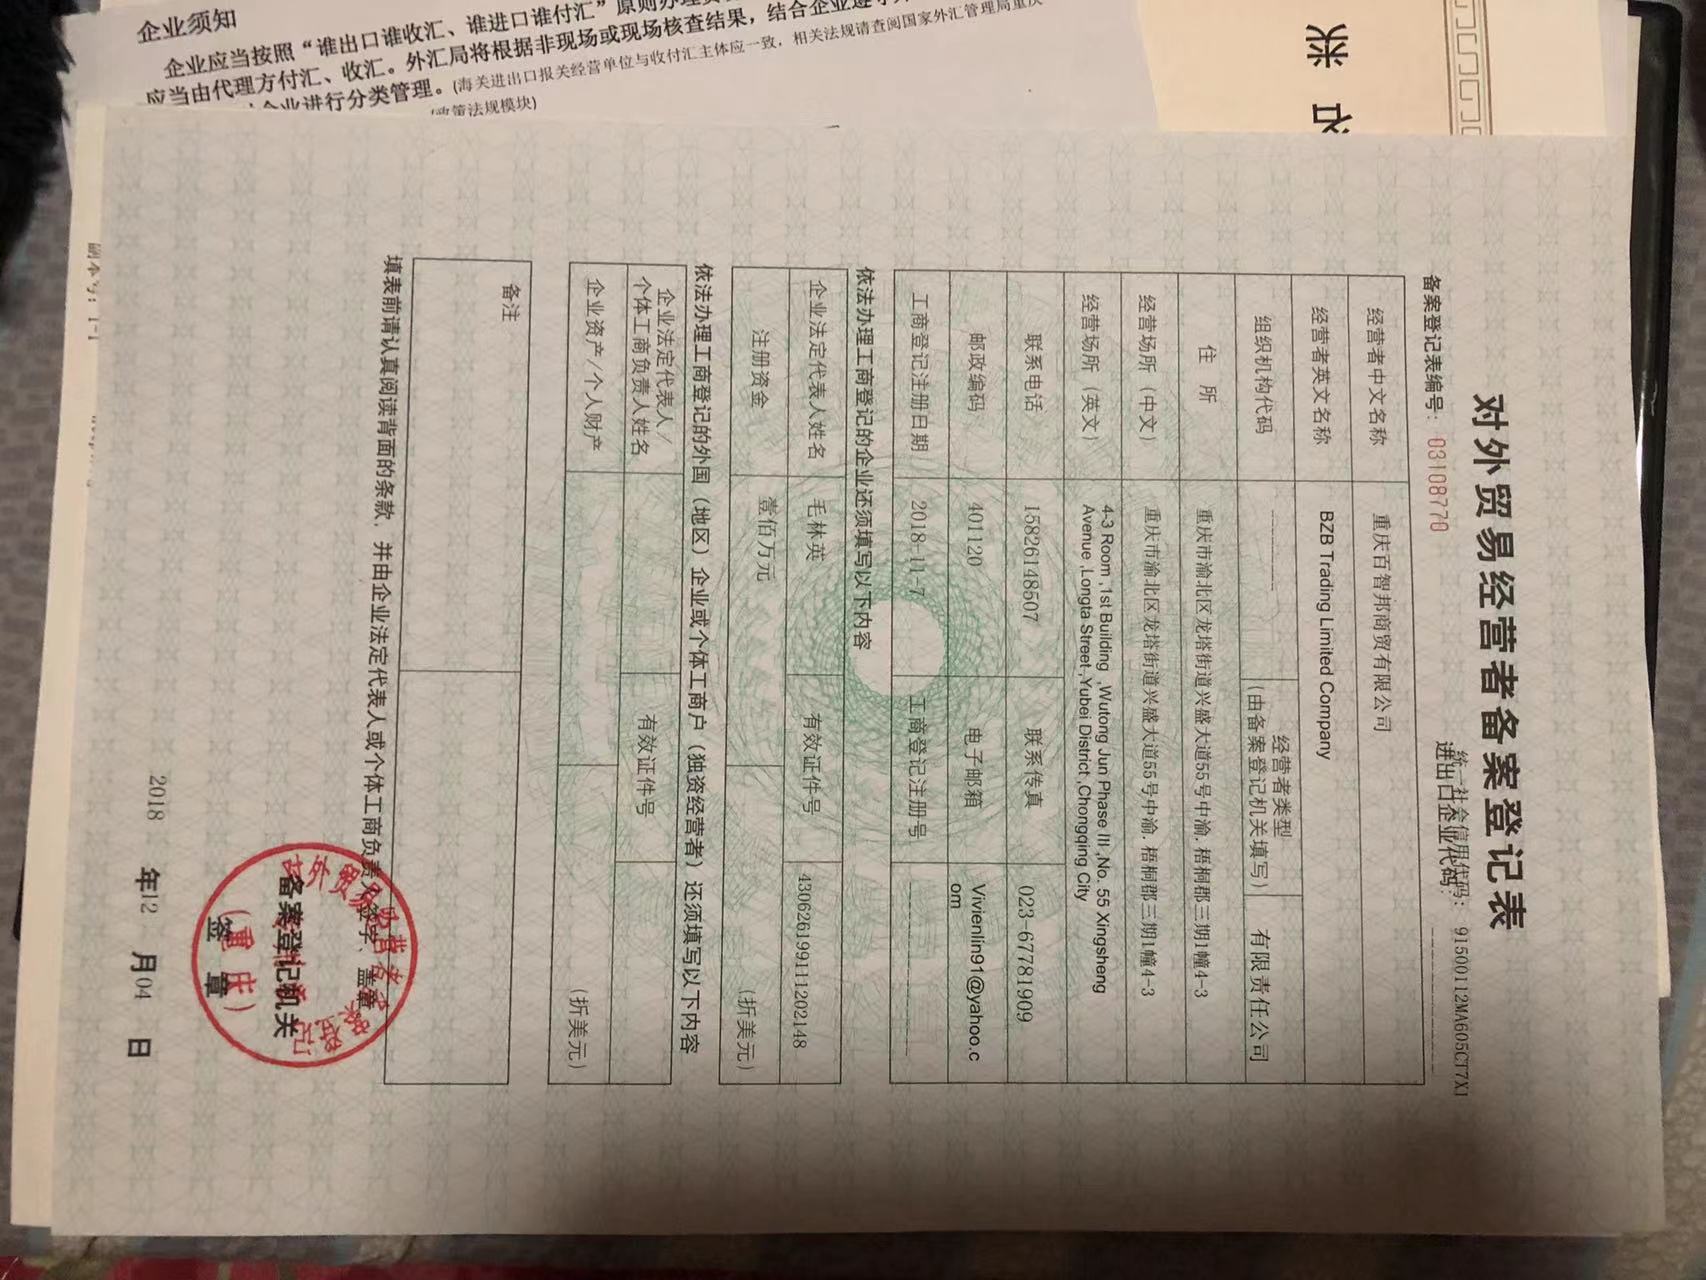 企业须知
企业应当按照“谁出口谁收汇、谁进口谁付汇”原则办理
应当由代理方付汇、收汇。外汇局将根据非现场或现场核查结果，结合企业遵守外
企业进行分类管理。(海关进出口报关经营单位与收付汇主体应一致，相关法规请查阅国家外汇管理局重庆
政策法规模块)
对外贸易经营者备案登记表
统一社会信用代码：91500112MA605CT7X1
备案登记表编号：03108770
进出口企业代码：
经营者中文名称 重庆百智邦商贸有限公司
经营者英文名称 BZB Trading Limited Company
组织机构代码 经营者类型
(由备案登记机关填写) 有限责任公司
住 所 重庆市渝北区龙塔街道兴盛大道55号中渝.梧桐郡三期1幢4-3
经营场所（中文） 重庆市渝北区龙塔街道兴盛大道55号中渝.梧桐郡三期1幢4-3
经营场所（英文） 4-3 Room ,1st Building ,Wutong Jun Phase III ,No. 55 Xingsheng
Avenue ,Longta Street ,Yubei District ,Chongqing City
联系电话 15826148507 联系传真 023-67781909
邮政编码 401120 电子邮箱 Vivienlin91@yahoo.c
om
工商登记注册日期 2018-11-7 工商登记注册号
依法办理工商登记的企业还须填写以下内容
企业法定代表人姓名 毛林英 有效证件号 430626199111202148
注册资金 壹佰万元 (折美元)
依法办理工商登记的外国（地区）企业或个体工商户（独资经营者）还须填写以下内容
企业法定代表人/
个体工商负责人姓名 有效证件号
企业资产/个人财产 (折美元)
备注
填表前请认真阅读背面的条款，并由企业法定代表人或个体工商负责人签字、盖章。
备案登记机关
签 章
(重庆)
2018 年12 月04 日
副本号：1-1